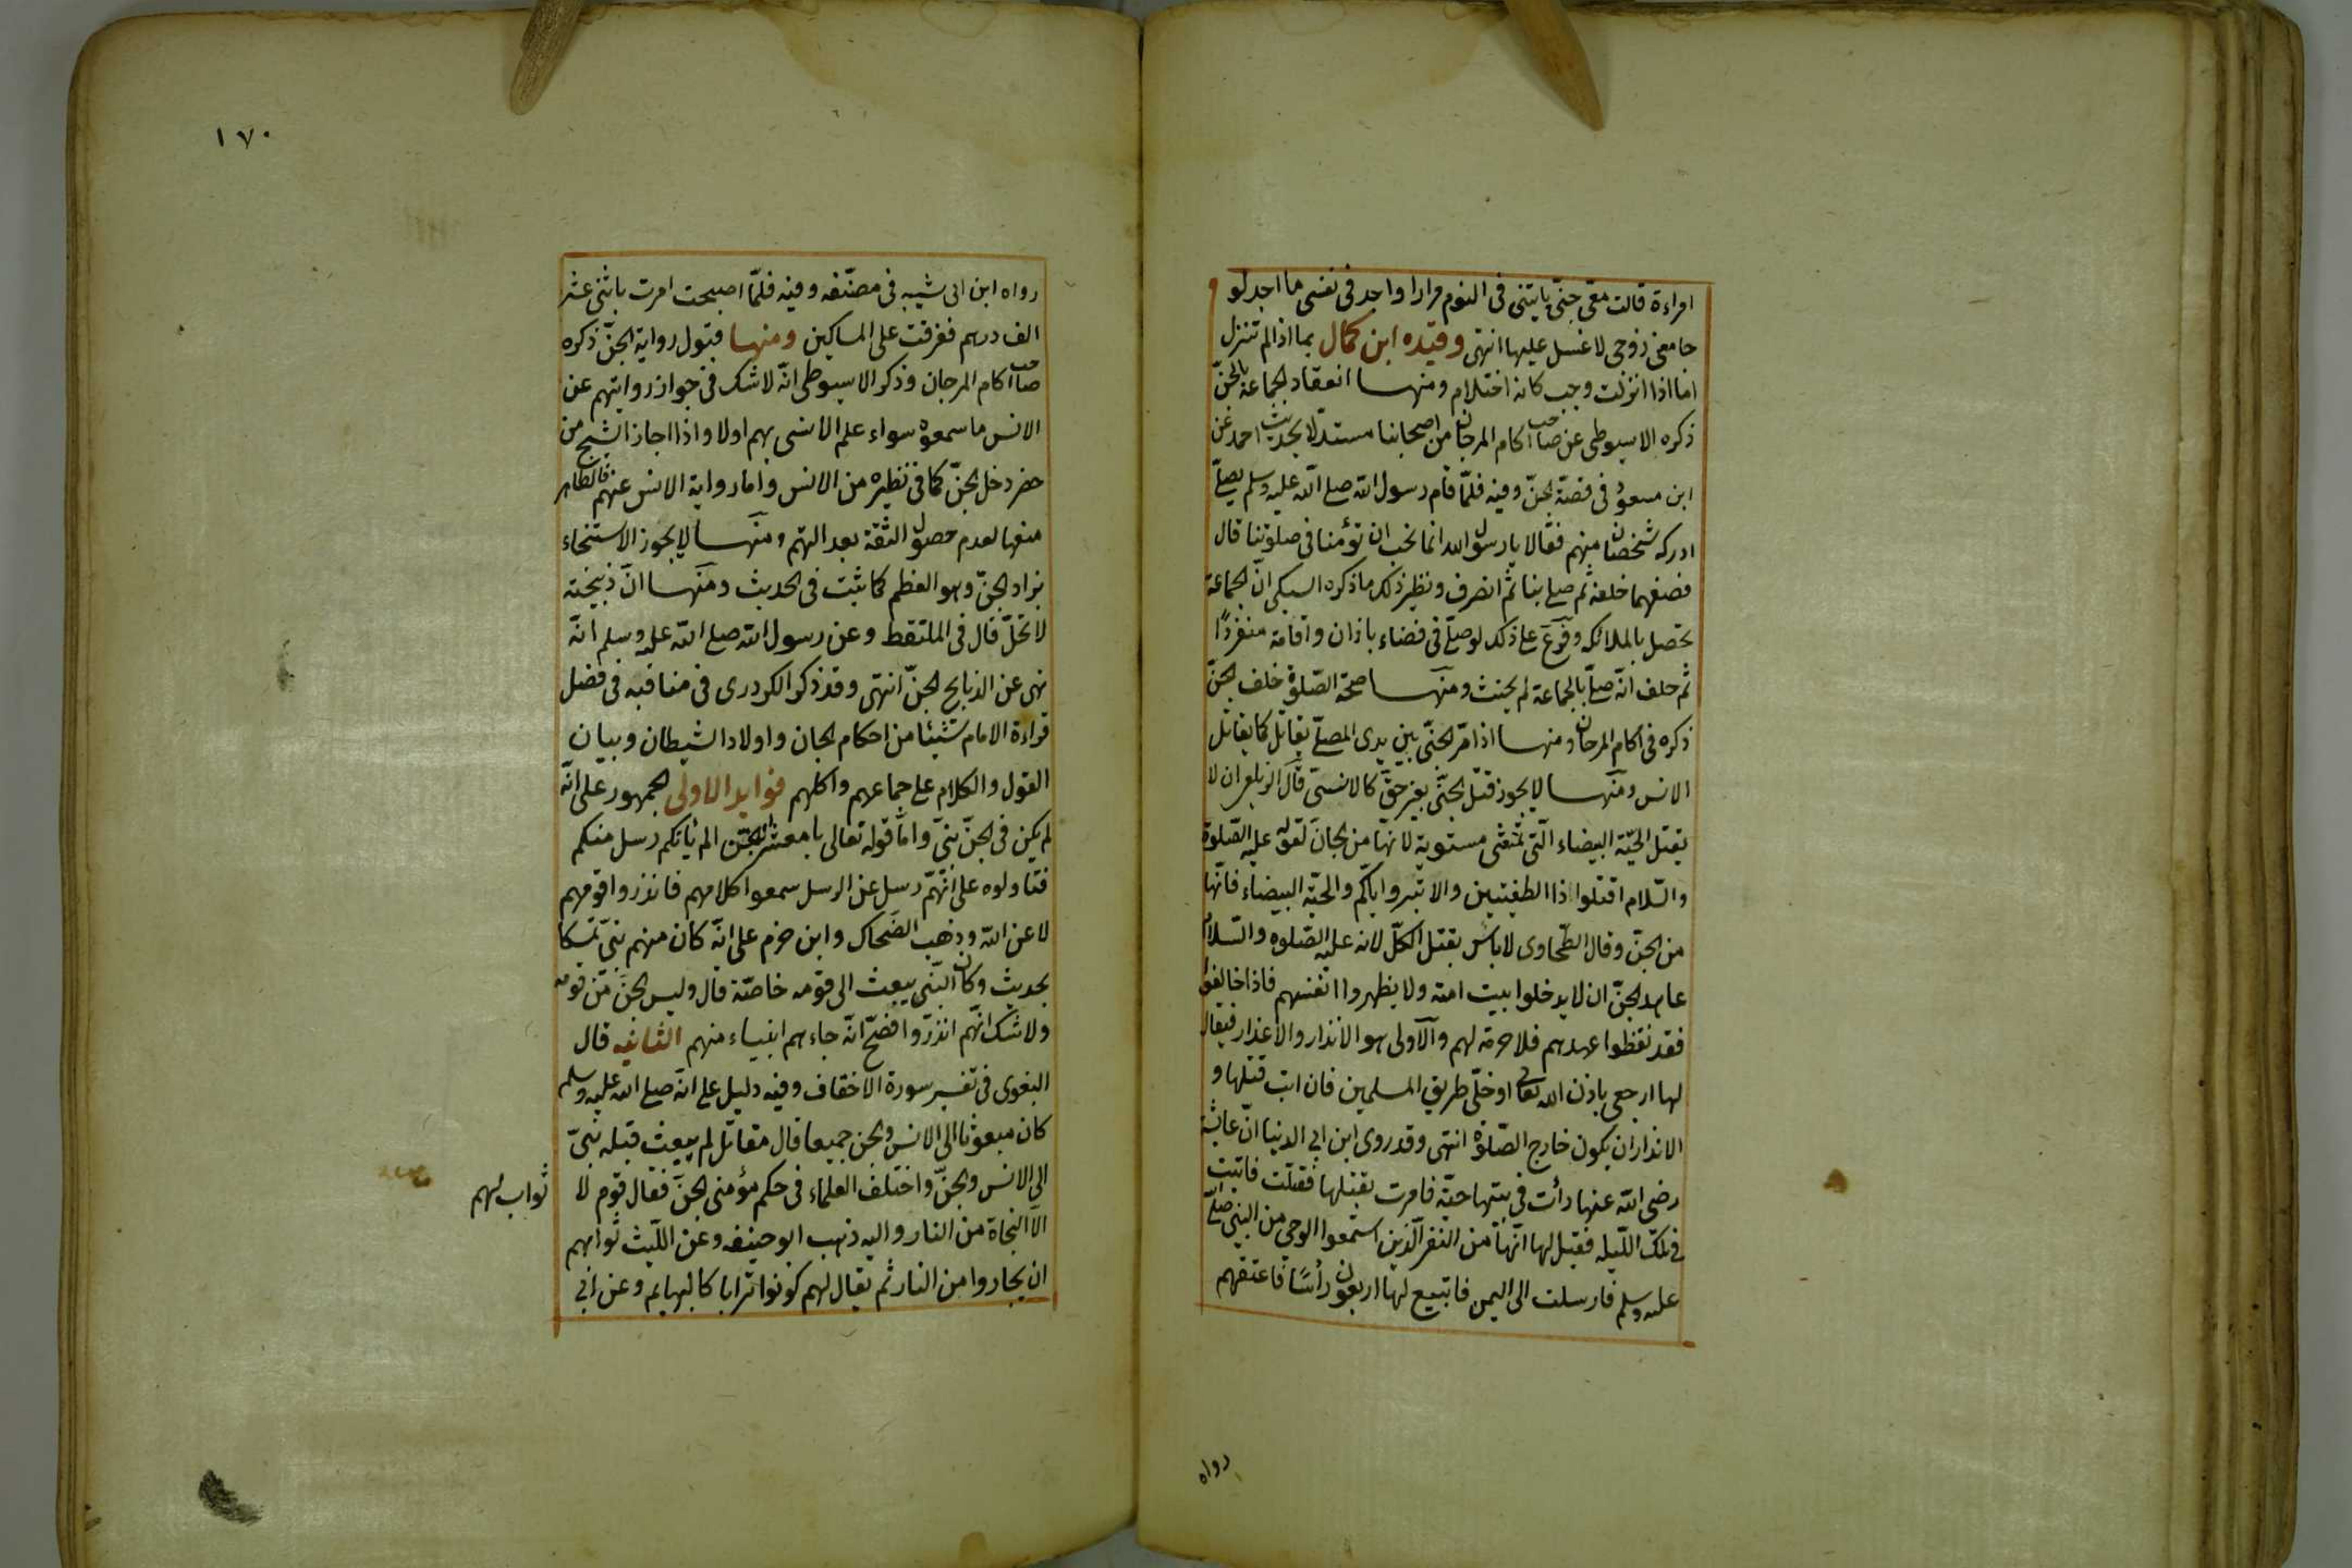 امراءة قالت معى جنى ياتينى فى النوم مرارا واجد فى نفسى ما اجد لو
جامعنى زوجى لا غسل عليها انتهى وقيده ابن كمال بما اذا لم تنزل
اما اذا انزلت وجب كانه احتلام ومنها انعقاد الجماعة بالجنّ
ذكره الاسيوطى عن صاحب اكام المرجان من اصحابنا مستدلا بحديث احمد عن
ابن مسعود فى قصة الجنّ وفيه فلمّا قام رسول الله صلى الله عليه وسلم يصلّى
ادركه شخصان منهم فقالا يا رسول الله انا نحب ان تؤمنا فى صلوتنا قال
فصفهما خلفه ثم صلى بنا ثم انصرف ونظير ذلك ما ذكره السبكى انّ الجماعة
تحصل بالملائكه وفرّع على ذلك لو صلّى فى فضاء باذان واقامة منفردًا
ثم حلف انّه صلّى بالجماعة لم يحنث ومنها صحة الصّلوة خلف الجنّ
ذكره فى اكام المرجان ومنها اذا مرّ الجنّى بين يدى المصلّى يقاتل كما يقاتل
الانس ومنها لا يجوز قتل الجنّى بغير حقّ كالانسىّ قال الزيلعى ان لا
يقتل الحيّة البيضاء الّتى تمشى مستوية لانّها من الجانّ لقوله عليه الصّلوة
والسّلام اقتلوا ذا الطفيتين والابتر واياكم والحيّة البيضاء فانّها
من الجنّ وقال الطّحاوى لا باس بقتل الكلّ لانه عليه الصّلوه والسّلام
عاهد الجنّ ان لا يدخلوا بيت امته ولا يظهروا انفسهم فاذا خالفوا
فقد نقظوا عهدهم فلا حرمة لهم والاولى هو الانذار والاعذار فيقال
لها ارجعى باذن الله تعالى او خلّى طريق المسلمين فان ابت قتلها و
الانذار ان يكون خارج الصّلوة انتهى وقد روى ابن ابى الدنيا انّ عائشة
رضى الله عنها رأت فى بيتها حيّة فامرت بقتلها فقتلت فاتيت
فى تلك اللّيله فقيل لها انّها من النفر الّذين استمعوا الوحى من النبى صلى
عليه وسلم فارسلت الى اليمن فابتيع لها اربعون رأسًا فاعتقهم
رواه
١٧٠
رواه ابن ابى شيبه فى مصنّفه وفيه فلمّا اصبحت امرت باثنى عشر
الف درهم ففرقت على المساكين ومنها قبول رواية الجنّ ذكره
صاحب اكام المرجان وذكر الاسيوطى انّه لا شك فى جواز روايتهم عن
الانس ما سمعوه سواء علم الانسى بهم اولا واذا اجاز الشيخ من
حضر دخل الجنّ كما فى نظيره من الانس واما رواية الانس عنهم فالظاهر
منعها لعدم حصول الثقة بعدالتهم ومنها لا يجوز الاستنجاء
بزاد الجنّ وهو العظم كما ثبت فى الحديث ومنها انّ ذبيحته
لا تحلّ قال فى الملتقط وعن رسول الله صلى الله عليه وسلم انّه
نهى عن الذبايح الجنّ انتهى وقد ذكر الكردرى فى مناقبه فى فضل
قراءة الامام شيئا من احكام الجان واولاد الشيطان وبيان
القول والكلام على جماعهم واكلهم فوايد الاولى الجمهور على انّه
لم يكن فى الجنّ نبىّ وامّا قوله تعالى يا معشر الجنّ الم يأتكم رسل منكم
فتاولوه على انّهم رسل عن الرسل سمعوا كلامهم فانذروا قومهم
لا عن الله وذهب الضحاك وابن حزم على انّه كان منهم نبىّ تمسكا
بحديث وكان النّبى يبعث الى قومه خاصّة قال وليس الجنّ من قومه
ولا شك انّهم انذروا فصحّ انّه جاءهم انبياء منهم الثانيه قال
البغوى فى تفسير سورة الاحقاف وفيه دليل على انّه صلى الله عليه وسلم
كان مبعوثا الى الانس والجن جميعا قال مقاتل لم يبعث قبله نبىّ
الى الانس والجنّ واختلف العلماء فى حكم مؤمنى الجنّ فقال قوم لا
ثواب لهم
الّا النجاة من النار واليه ذهب ابو حنيفه وعن اللّيث ثوابهم
ان يجاروا من النار ثم يقال لهم كونوا ترابا كالبهايم وعن ابى